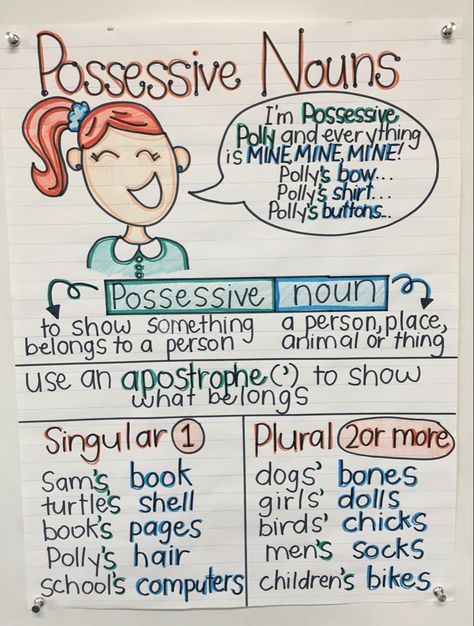 Possessive Nouns
I'm Possessive
Polly and everything
is MINE, MINE, MINE!
Polly's bow...
Polly's shirt...
Polly's buttons...
Possessive noun
to show something
belongs to a person
a person, place,
animal or thing
use an apostrophe (') to show
what belongs
Singular 1
Sam's book
turtle's shell
book's pages
Polly's hair
school's computers
Plural 2 or more
dogs' bones
girls' dolls
birds' chicks
men's socks
children's bikes